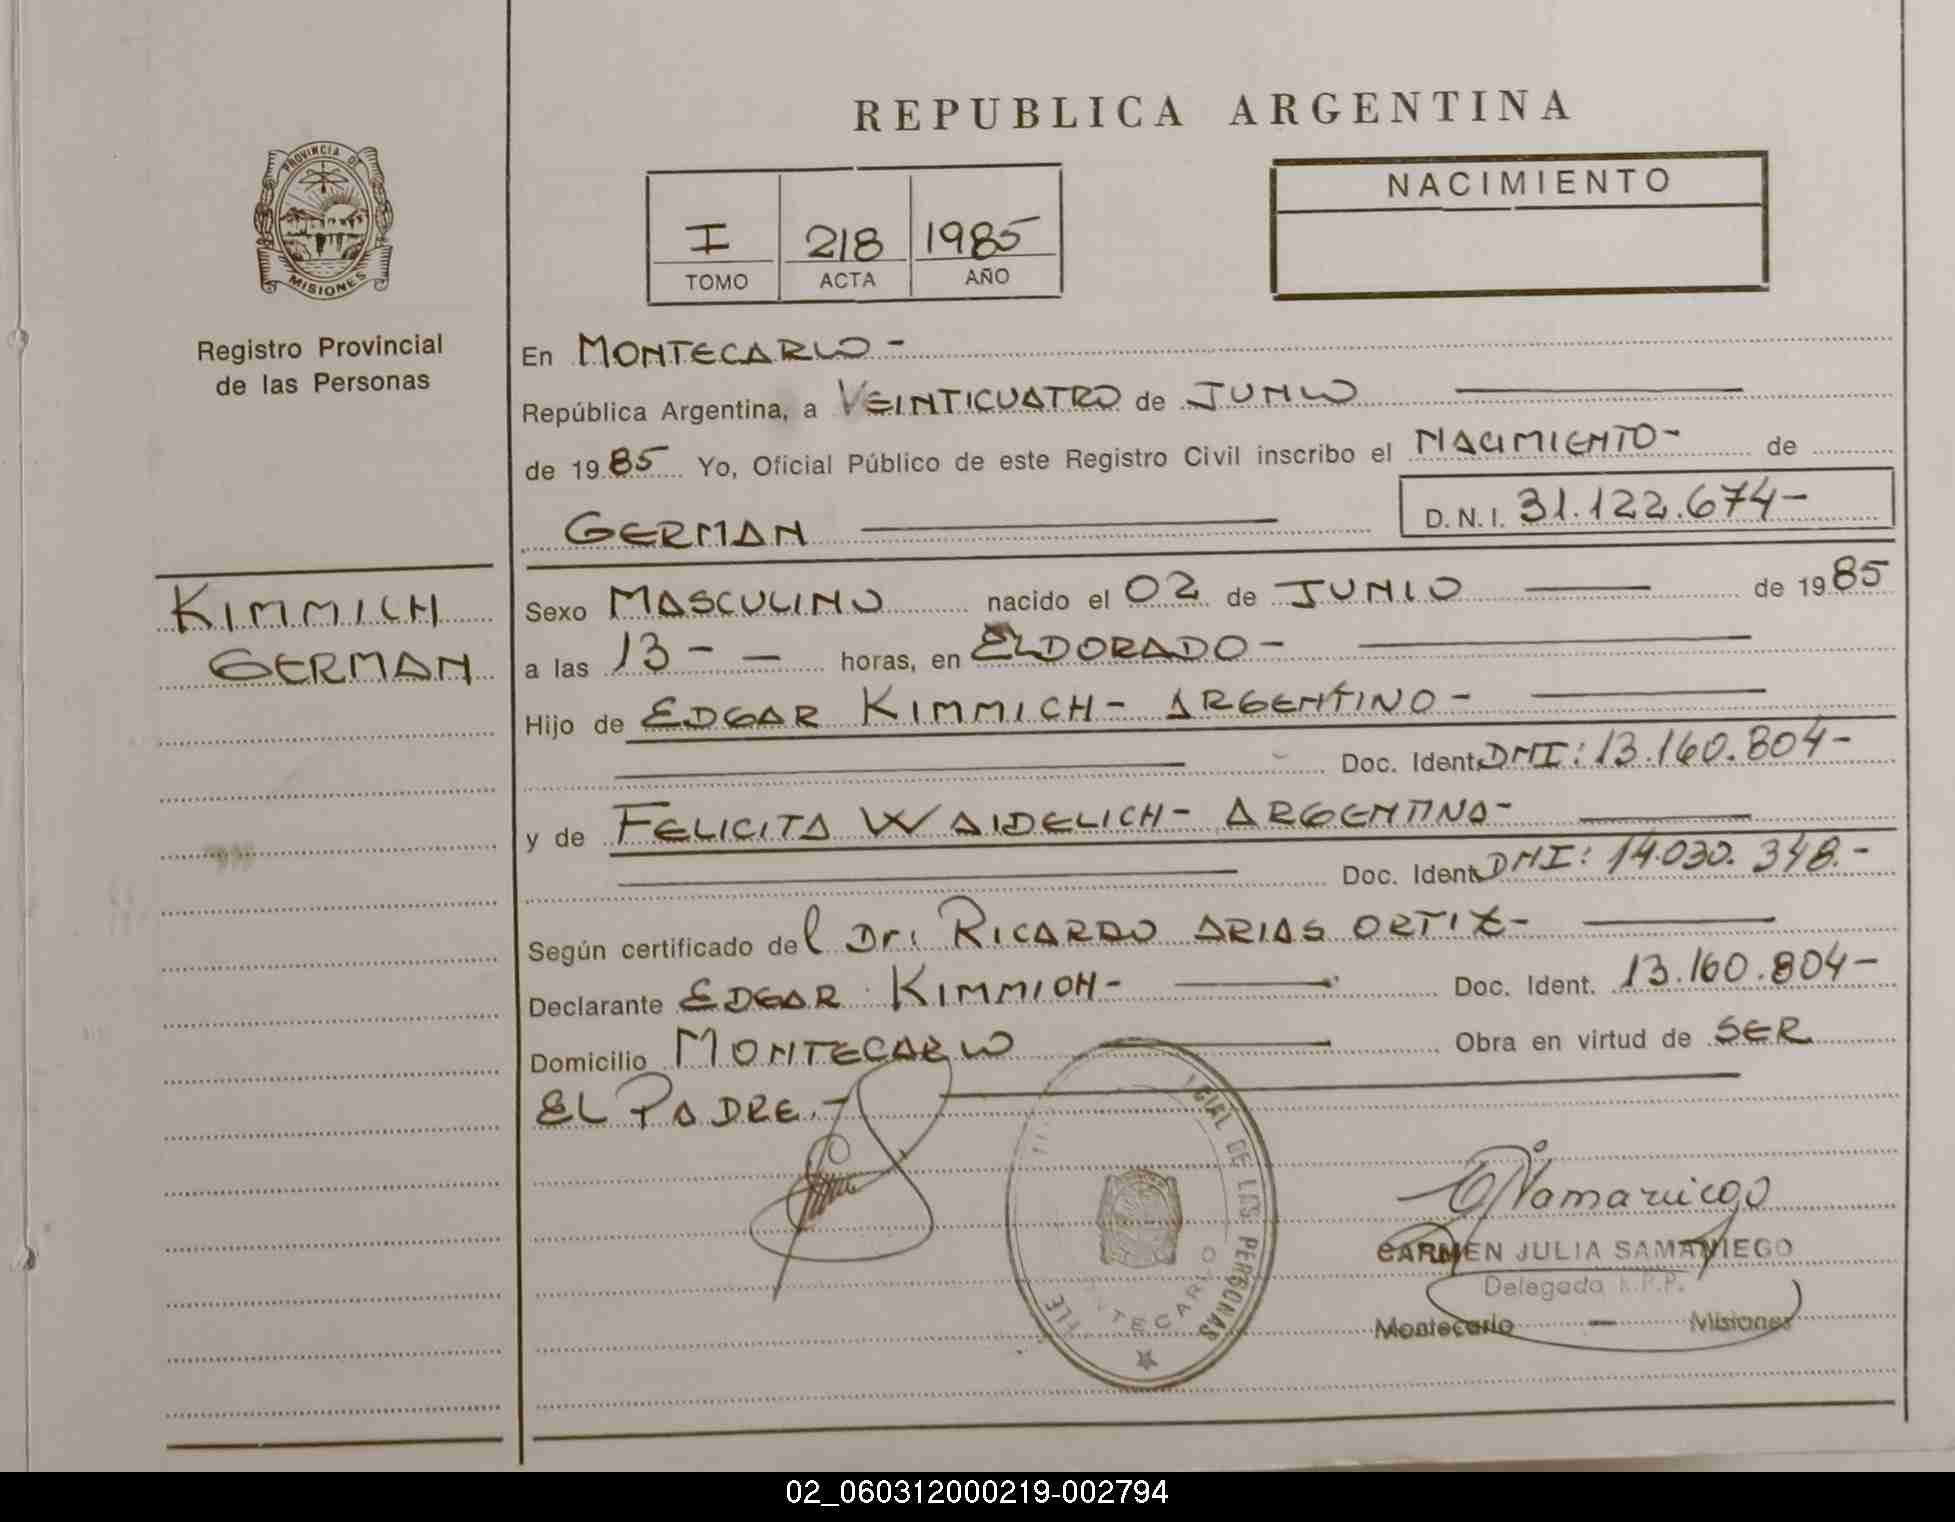 REPUBLICA ARGENTINA
PROVINCIA DE
MISIONES
Registro Provincial
de las Personas
KIMMICH
GERMAN
I 218 1985
TOMO ACTA AÑO
NACIMIENTO
En MONTECARLO-
República Argentina, a VEINTICUATRO de JUNIO
de 1985 Yo, Oficial Público de este Registro Civil inscribo el NACIMIENTO- de
GERMAN D.N.I. 31.122.674-
Sexo MASCULINO nacido el 02 de JUNIO de 1985
a las 13- - horas, en ELDORADO-
Hijo de EDGAR KIMMICH- ARGENTINO-
Doc. Ident. DNI: 13.160.804-
y de FELICITA WAIDELICH- ARGENTINA-
Doc. Ident. DNI: 14.030.348.-
Según certificado del Dr. RICARDO ARIAS ORTIZ-
Declarante EDGAR KIMMICH- Doc. Ident. 13.160.804-
Domicilio MONTECARLO Obra en virtud de SER
EL PADRE.-
DE LAS PERSONAS
CARMEN JULIA SAMANIEGO
Delegada R.P.P.
Montecarlo - Misiones
02_060312000219-002794